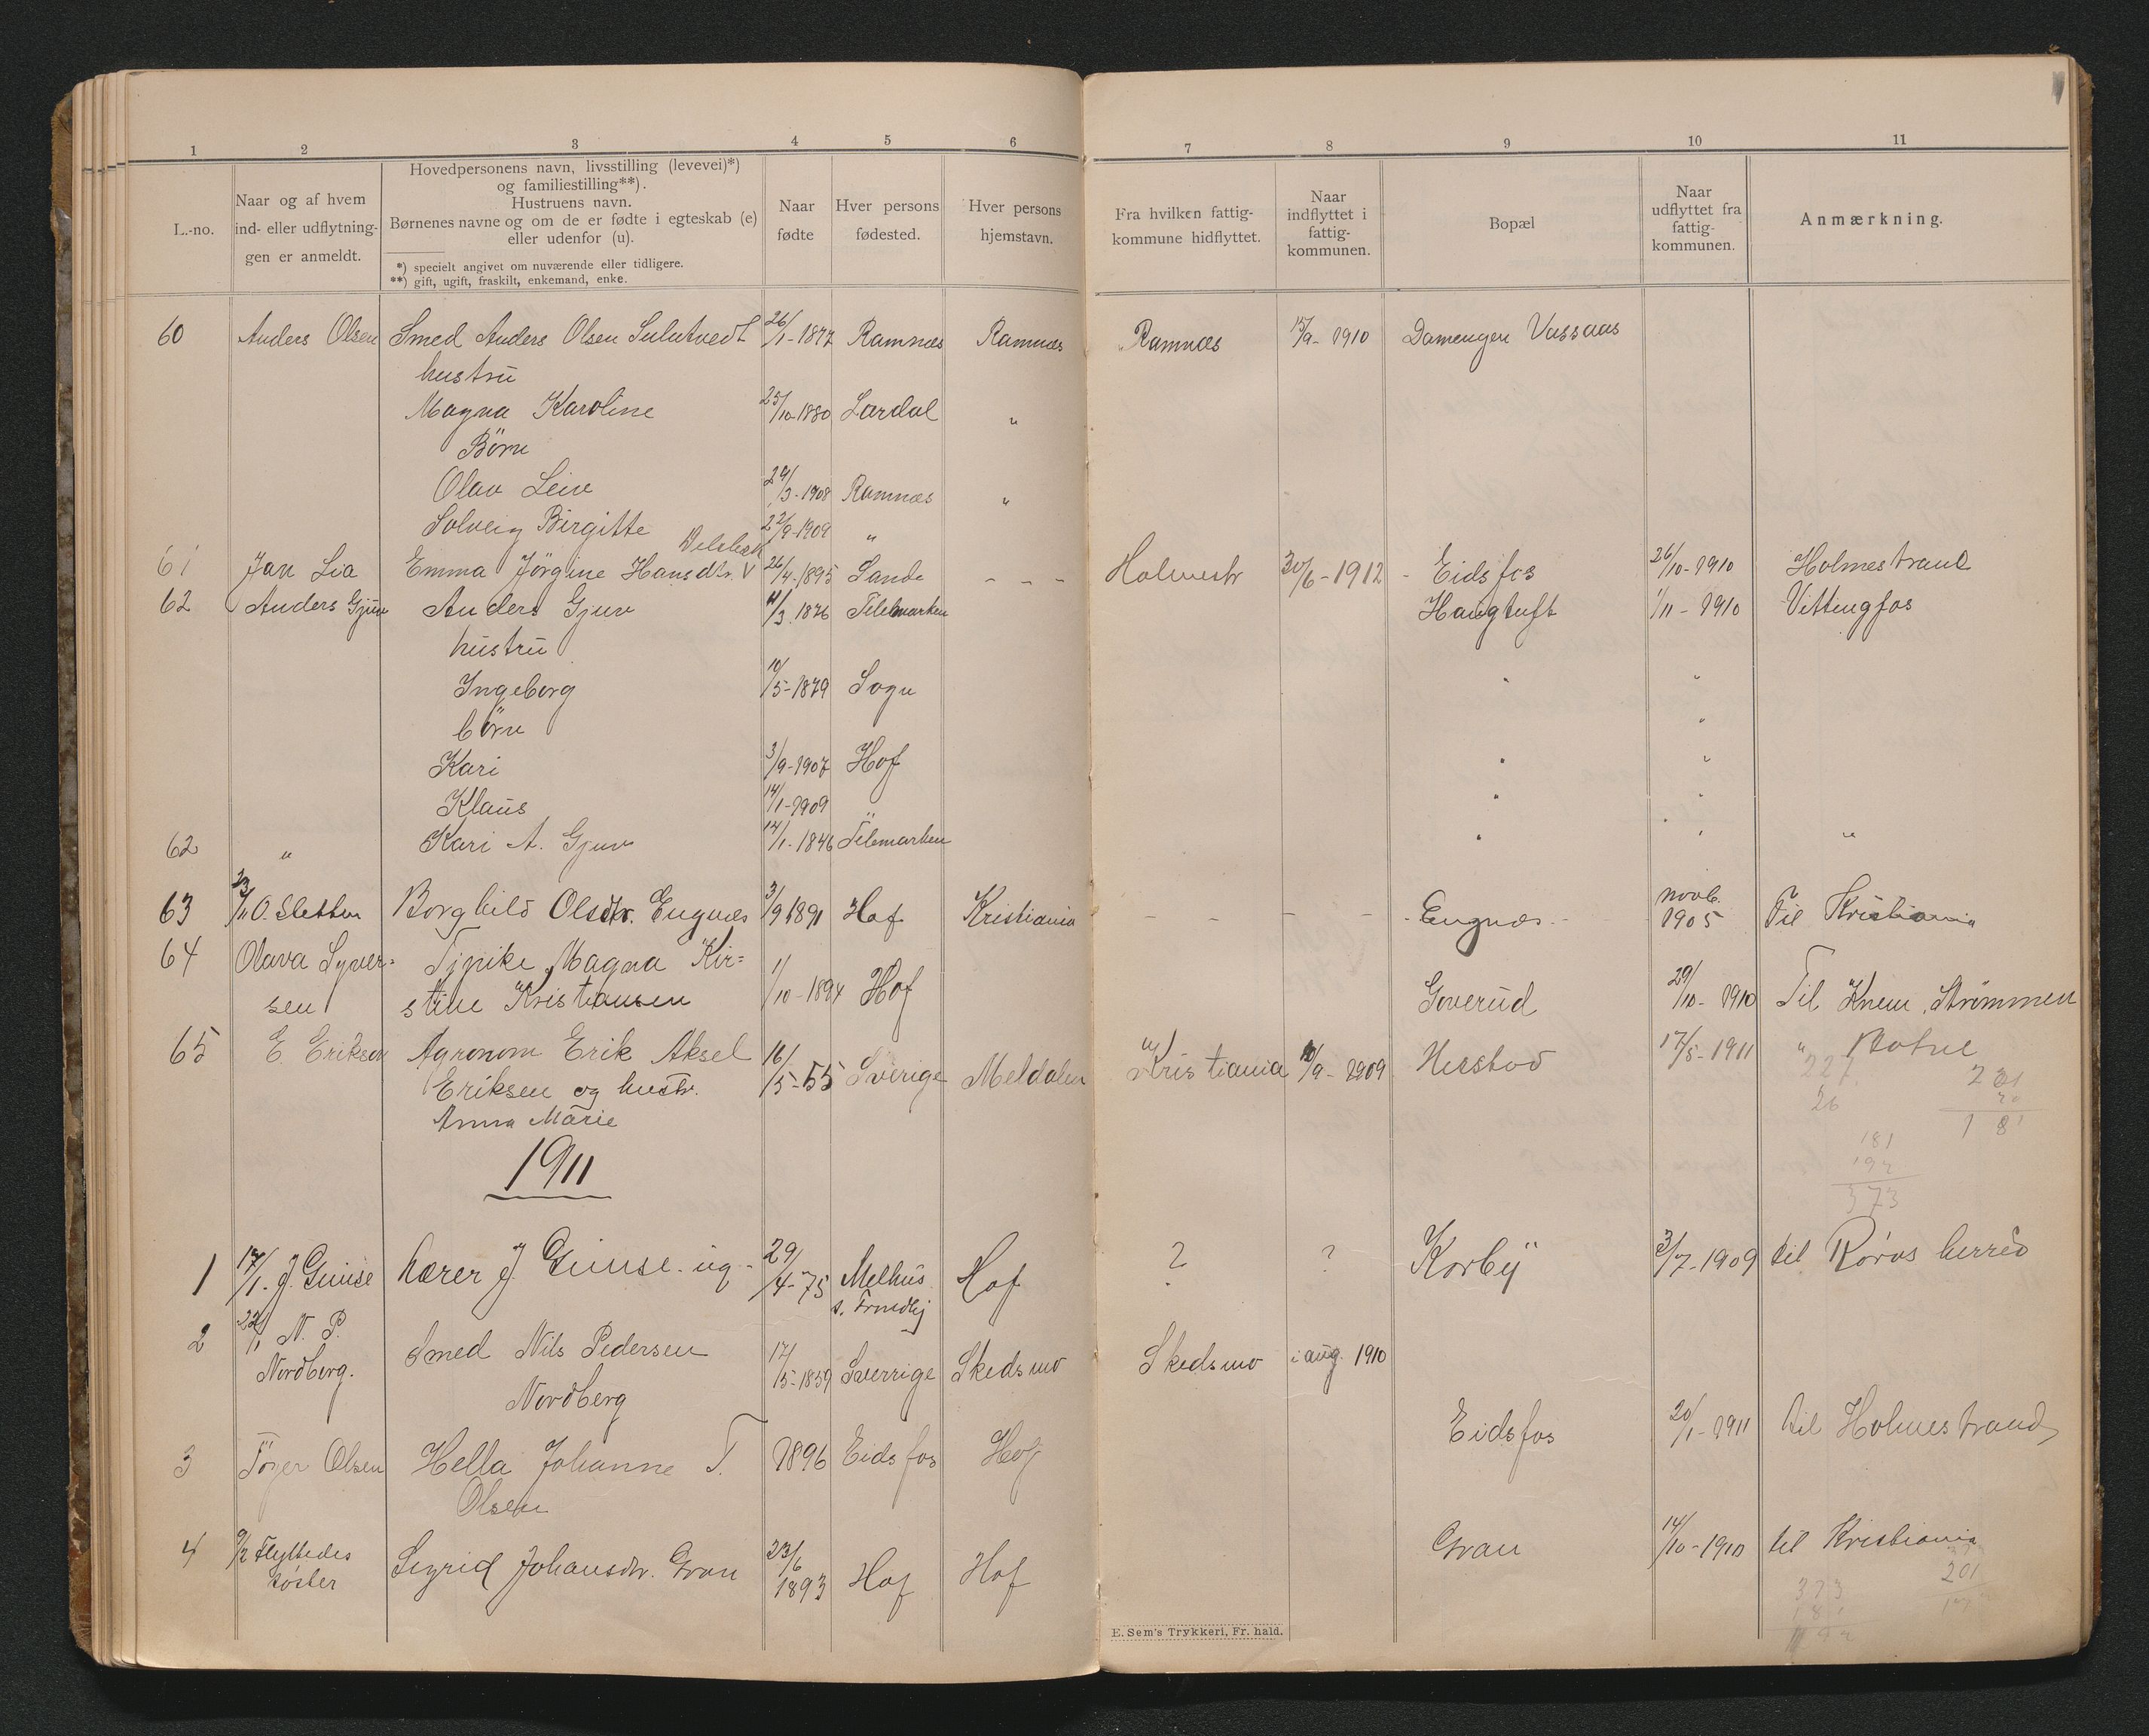 1 2 3 4 5 6 7 8 9 10 11
L.-no.
Naar og af hvem
ind- eller udflytnin-
gen er anmeldt.
Hovedpersonens navn, livsstilling (levevei)*)
og familiestilling**).
Hustruens navn.
Børnenes navne og om de er fødte i egteskab (e)
eller udenfor (u).
*) specielt angivet om nuværende eller tidligere.
**) gift, ugift, fraskilt, enkemand, enke.
Naar
fødte
Hver persons
fødested.
Hver persons
hjemstavn.
Fra hvilken fattig-
kommune hidflyttet.
Naar
indflyttet i
fattig-
kommunen.
Bopæl
Naar
udflyttet fra
fattig-
kommunen.
Anmærkning.
60 Anders Olsen Smed Anders Olsen 26/1-1877 Ramnæs Ramnæs Ramnæs 15/9-1910 Damengen Vassaas
hustru
Magna Karoline 25/10-1880 Lardal "
Børn
Olav Leiv 29/3-1908 Ramnæs "
Solveig Birgitte 22/9-1909 "
61 Jan Lia Emma Jørgine Hansdtr. 26/4-1895 Sande - - - Holmestr 30/6-1912 - Eidsfos 26/10-1910 Holmestrand
62 Anders Gjuv Anders Gjuv 11/3.1876 Telemarken Haugtuft 1/11-1910 Vittingfos
hustru
Ingeborg 10/5-1879 Sogn " "
børn "
Kari 3/9-1907 Hof " "
Klaus 14/1-1909 " " "
62 " Kari A. Gjuv 14/1-1846 Telemarken " " "
63 23/11 O. Sletten Borghild Olsdtr. Engnæs 3/9 1891 Hof Kristiania - - - - Engnæs - novb. 1905 Til Kristiania
64 Olava Syver= Tjpike Magna Kir=
sen stine Kristiansen 1/10-1894 Hof Goverud 29/10-1910 Til Strømmen
65 E Eriksen Agronom Erik Aksel 16/5-55 Sverige Meldalen Kristiania 10/9-1909 17/5-1911 " Botne
Eriksen og hustr.
Anna Marie
227
26
221
181
181
192
373
1911
1 17/1. J. Gimse Lærer J. Gimse - ug - 29/4-75 Melhus Hof ? ? Korby 3/7-1909 til Røros herred
2 22/1 N. P.
Nordberg. Smed Nils Pedersen 17/5-1859 Sverrige Skedsmo Skedsmo i aug. 1910
Nordberg
3 Tøger Olsen Hella Johanne T. 1896 Eidsfos Hof Eidsfos 20/1-1911 til Holmestrand
Olsen
4 9/2 Flyttedes
søster Sigrid Johansdtr. Gran 23/6
1893 Hof Hof Gran 14/10-1910 til Kristiania
201
373
E. Sem's Trykkeri, Fr.hald.